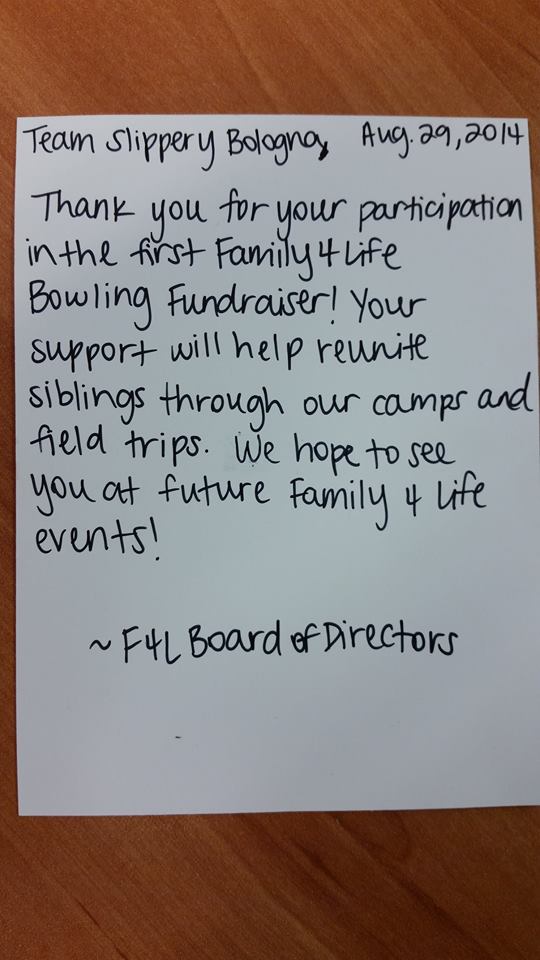 Team Slippery Bologna, Aug. 29, 2014
Thank you for your participation
in the first Family 4 Life
Bowling Fundraiser! Your
support will help reunite
siblings through our camps and
field trips. We hope to see
you at future Family 4 Life
events!
~ F4L Board of Directors